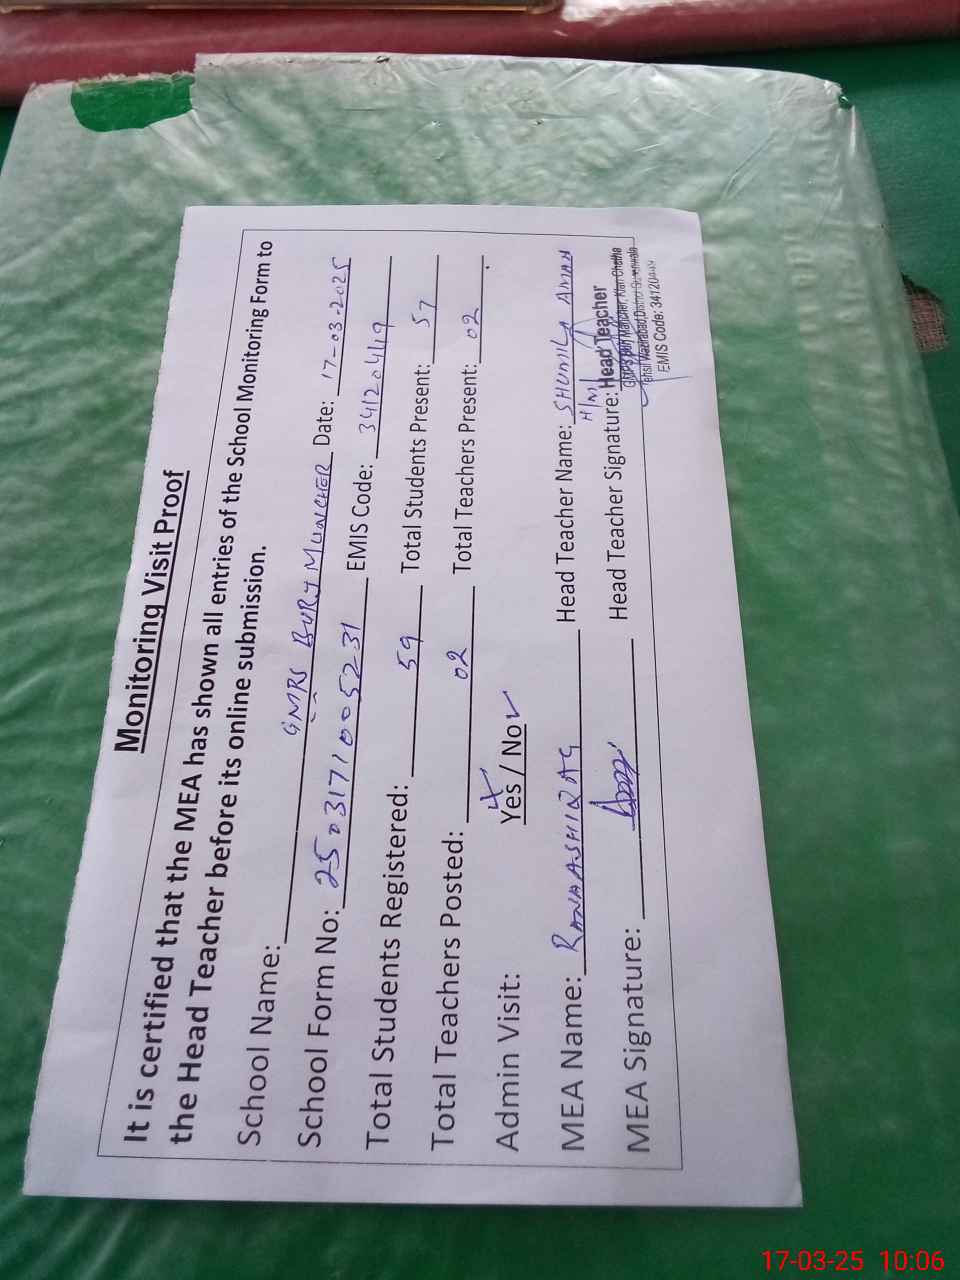 Monitoring Visit Proof
It is certified that the MEA has shown all entries of the School Monitoring Form to
the Head Teacher before its online submission.
School Name: GMRS BURJ MUNCHER Date: 17-03-2025
School Form No: 2503171005231 EMIS Code: 34120449
Total Students Registered: 59 Total Students Present: 57
Total Teachers Posted: 02 Total Teachers Present: 02
Admin Visit: Yes / No ✓
MEA Name: RANA ASHIQ AG Head Teacher Name: SHUMILA AMAN
H/M
MEA Signature: Head Teacher Signature: Head Teacher
Tehsil Wazirabad, District
EMIS Code: 34120449
17-03-25 10:06